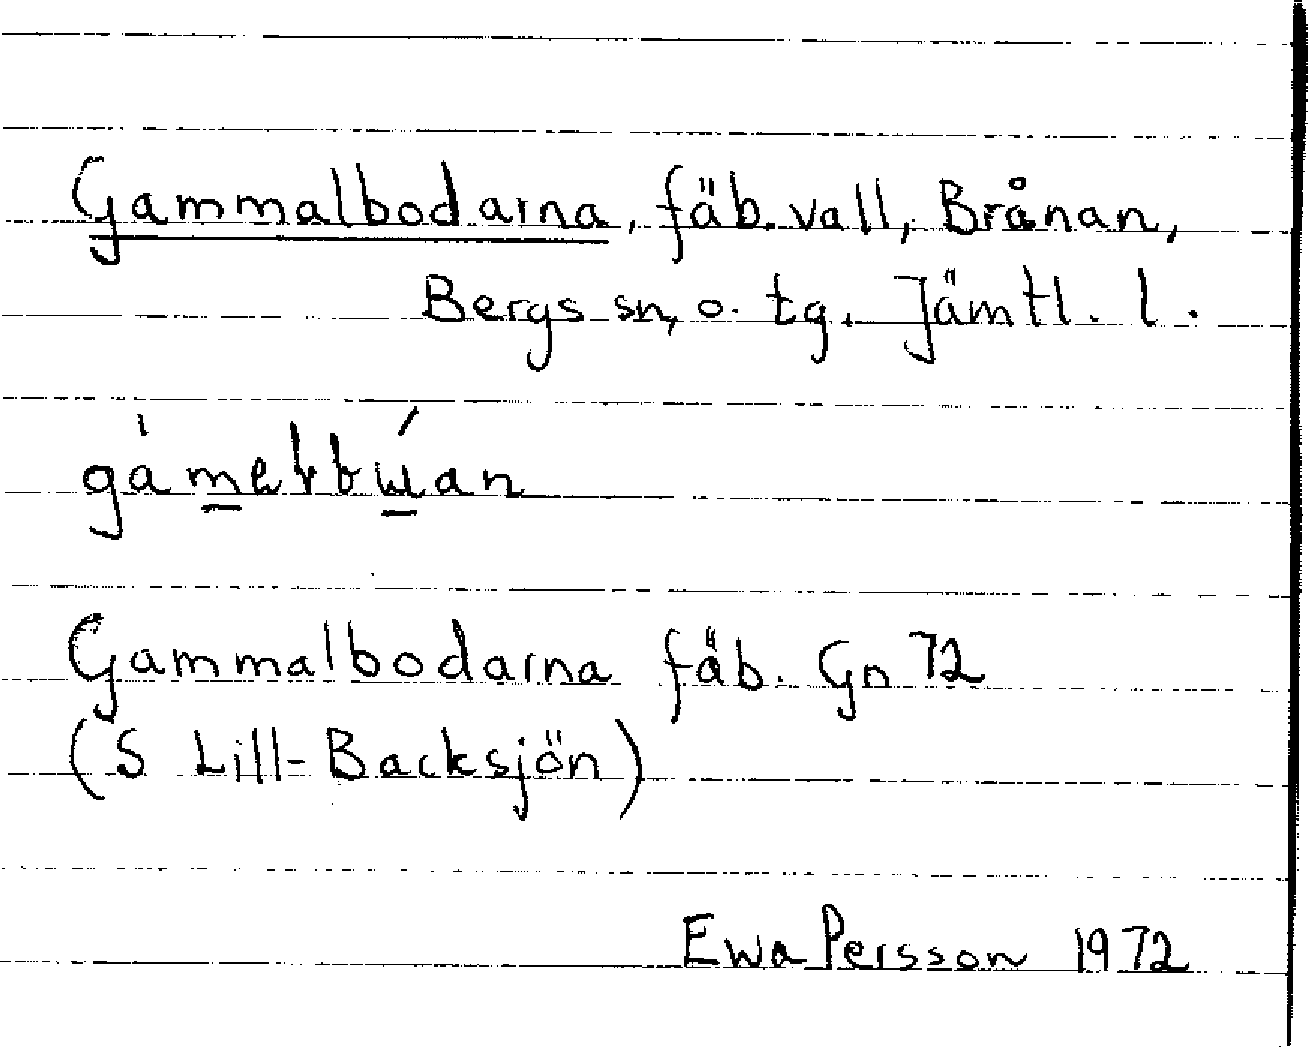 Gammalbodarna, fäb.vall, Brånan,
Bergs sn, o. tg. Jämtl. l.
Gammalbodarna fäb. Gn 72
(S Lill-Backsjön)
Ewa Persson 1972